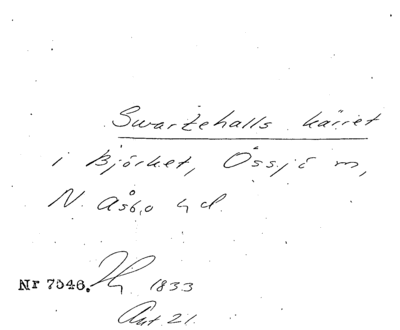 Swartehalls kärret
i Björket, Össjö m,
N. Åsbo hd.
Nr 7546. 1833
Ant. 21.